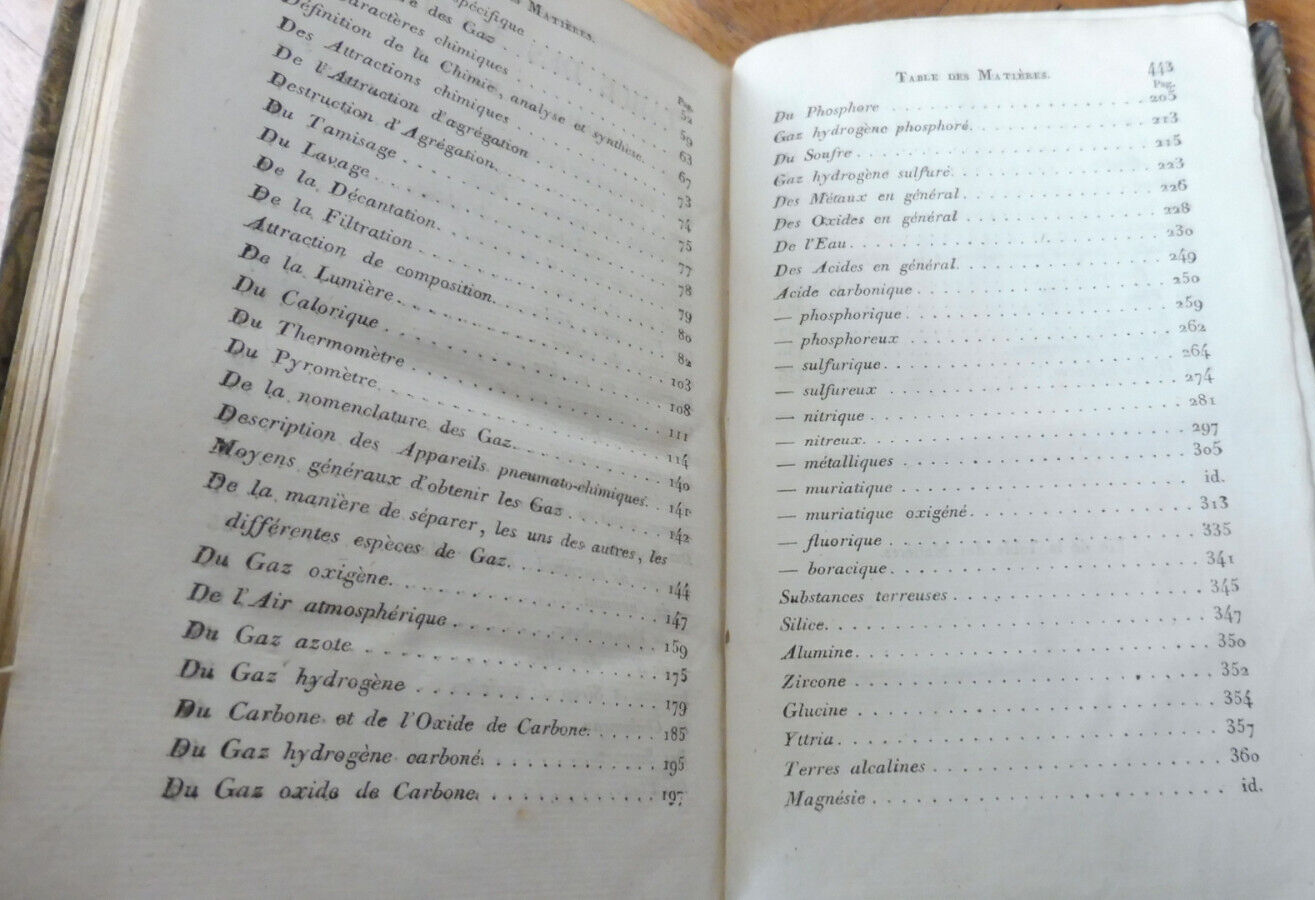 Matières.
Pag.
spécifique 52
des Gaz 59
Caractères chimiques 63
Définition de la Chimie, analyse et synthèse. 67
Des Attractions chimiques 73
De l'Attraction d'agrégation 74
Destruction d'Agrégation. 75
Du Tamisage 77
Du Lavage. 78
De la Décantation. 79
De la Filtration 80
Attraction de composition. 82
De la Lumière. 103
Du Calorique 108
Du Thermomètre 111
Du Pyromètre. 114
De la nomenclature des Gaz. 140
Description des Appareils pneumato-chimiques. 141
Moyens généraux d'obtenir les Gaz 142
De la manière de séparer, les uns des autres, les
différentes espèces de Gaz. 144
Du Gaz oxigène. 147
De l'Air atmosphérique 159
Du Gaz azote 175
Du Gaz hydrogène 179
Du Carbone et de l'Oxide de Carbone. 185
Du Gaz hydrogène carboné. 195
Du Gaz oxide de Carbone. 197
Table des Matières. 443
Pag.
Du Phosphore 205
Gaz hydrogène phosphoré. 213
Du Soufre 215
Gaz hydrogène sulfuré. 223
Des Métaux en général 226
Des Oxides en général 228
De l'Eau. 230
Des Acides en général. 249
Acide carbonique 250
— phosphorique 259
— phosphoreux 262
— sulfurique. 264
— sulfureux 274
— nitrique 281
— nitreux. 297
— métalliques 305
— muriatique id.
— muriatique oxigéné. 313
— fluorique 335
— boracique. 341
Substances terreuses 345
Silice. 347
Alumine. 350
Zircone 352
Glucine 354
Yttria. 357
Terres alcalines 360
Magnésie id.